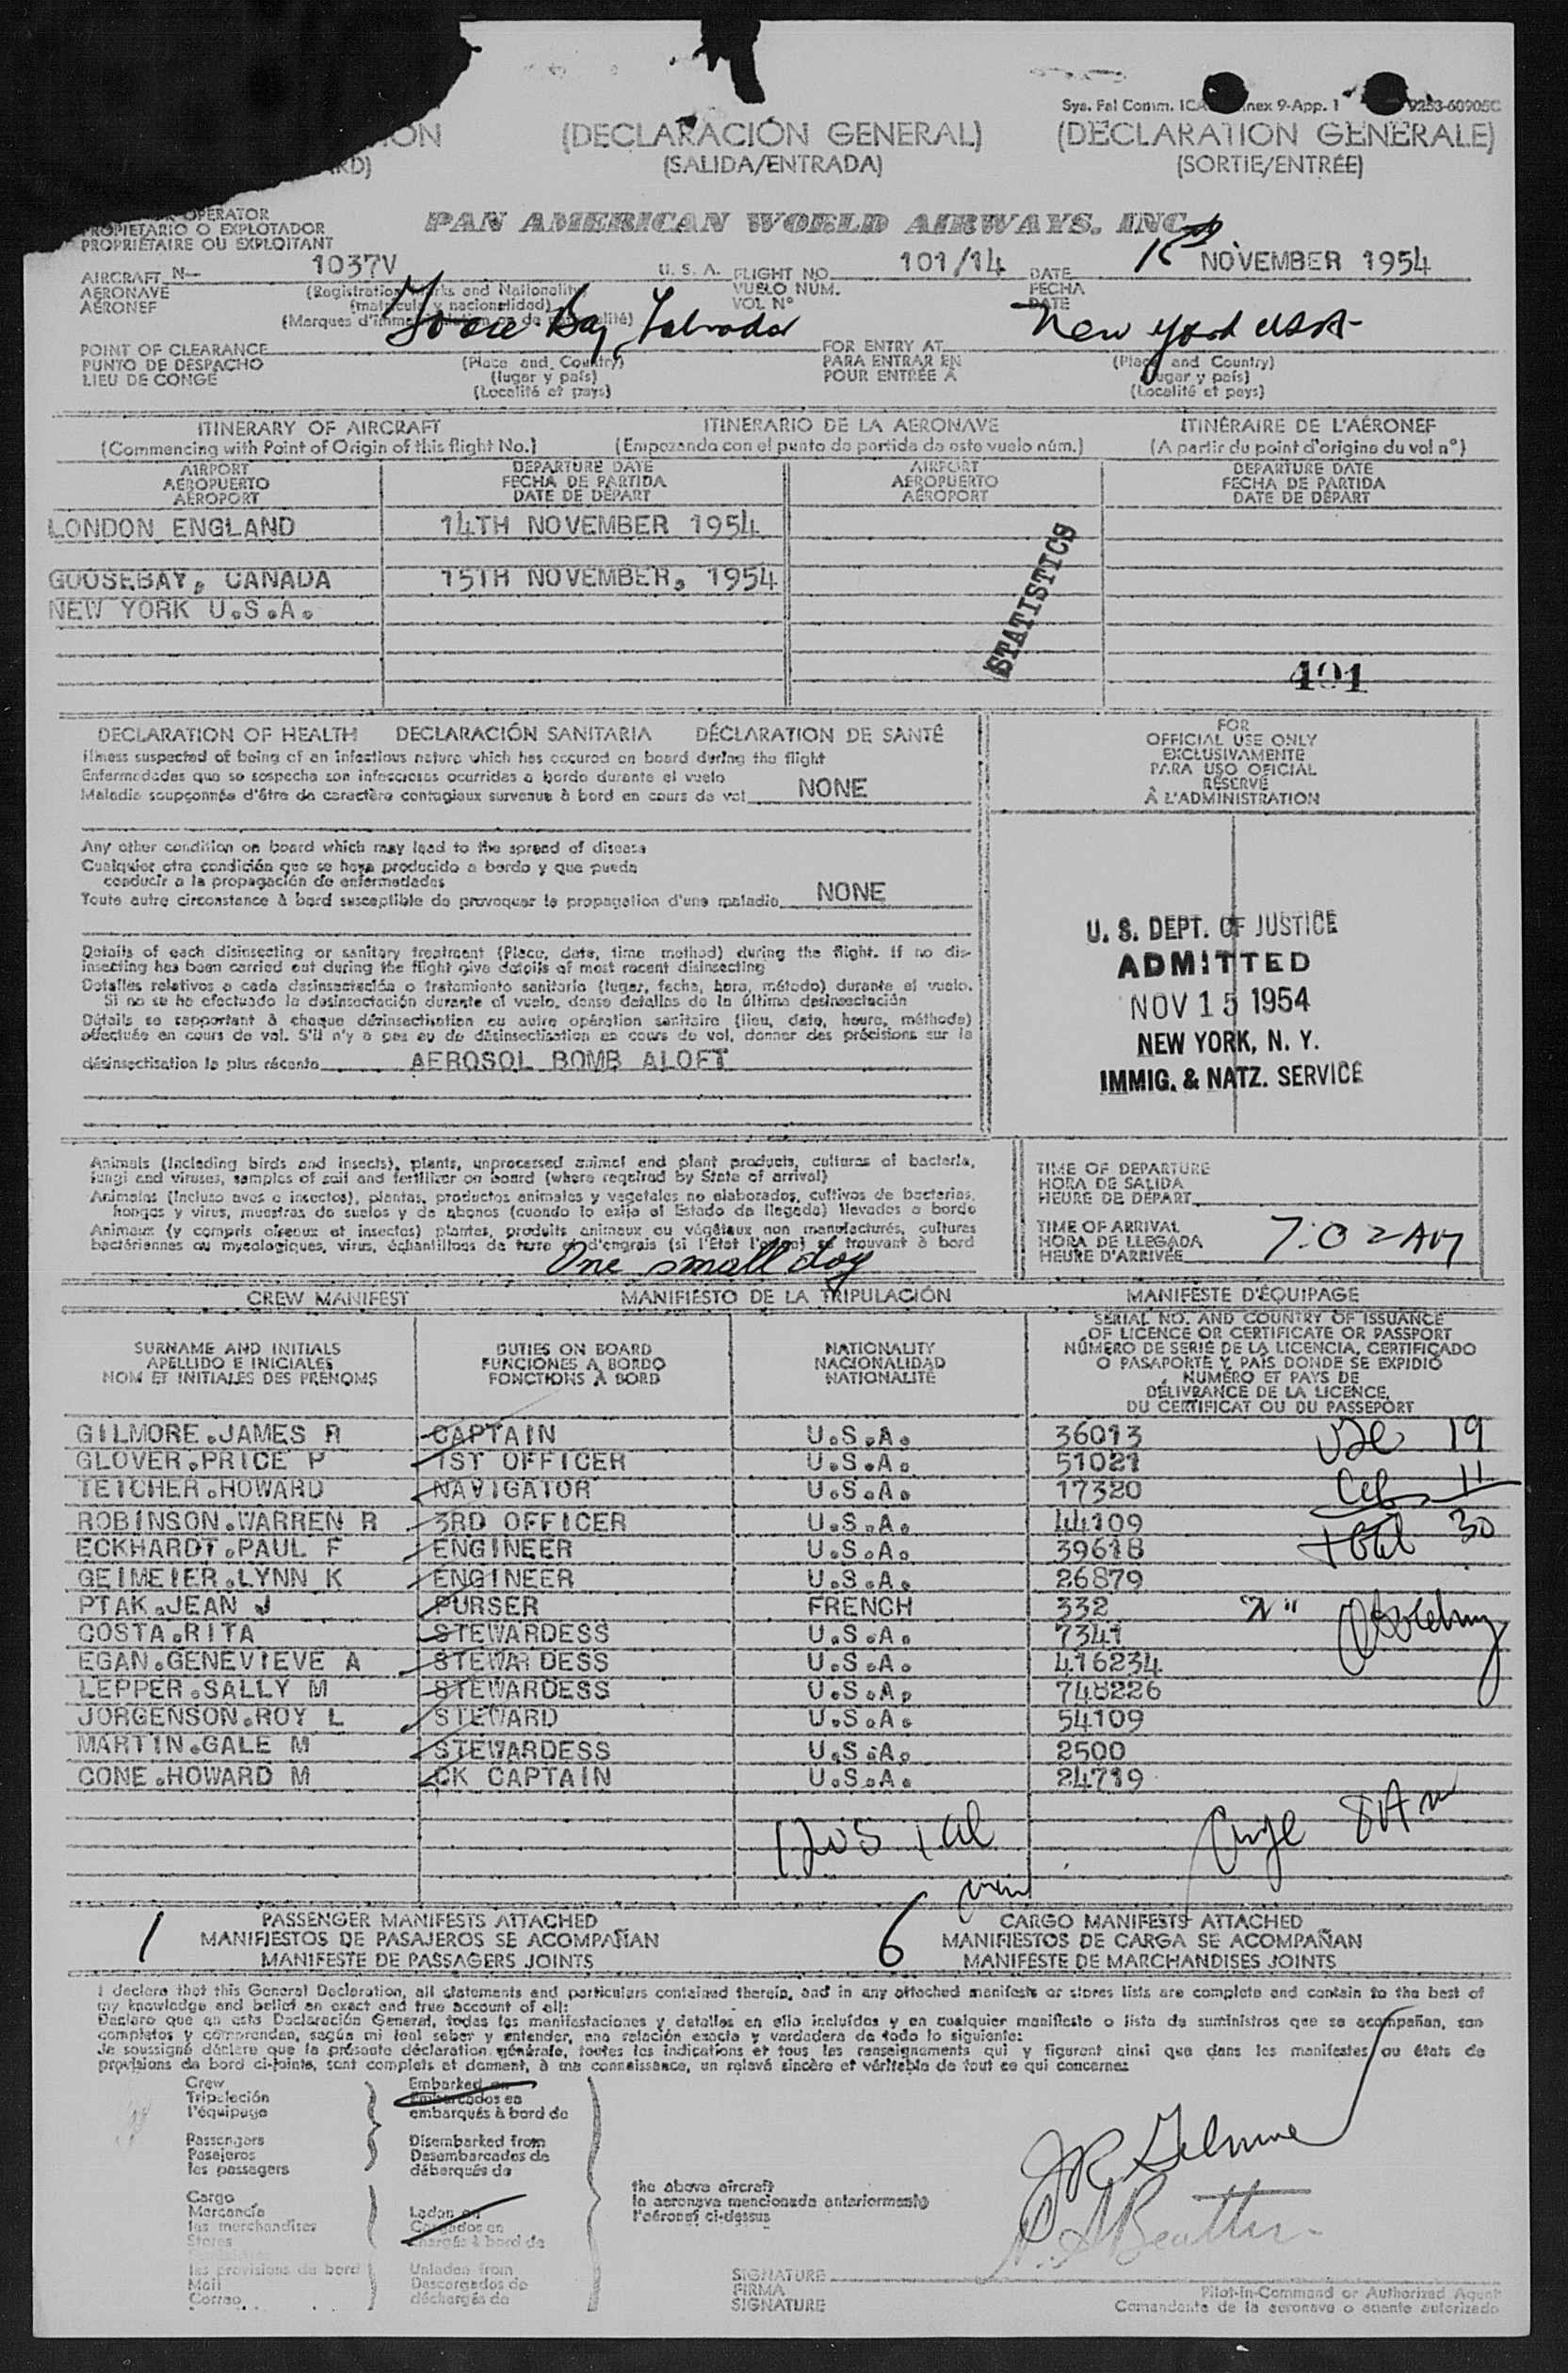 Sys. Fal Comm. ICA nex 9-App. 1 9253-60905C
ION (DECLARACIÓN GENERAL) (DÉCLARATION GÉNÉRALE)
RD) (SALIDA/ENTRADA) (SORTIE/ENTRÉE)
OPERATOR
PROPIETARIO O EXPLOTADOR
PROPRIÉTAIRE OU EXPLOITANT
PAN AMERICAN WORLD AIRWAYS, INC.
AIRCRAFT N- 1037V U. S. A. FLIGHT NO. 101/14 DATE NOVEMBER 1954
AERONAVE (Registration Marks and Nationality) VUELO NÚM. FECHA
AÉRONEF (matrícula y nacionalidad) VOL N° DATE
(Marques d'imma
Goose Bay, Labrador New York USA
POINT OF CLEARANCE FOR ENTRY AT
PUNTO DE DESPACHO (Place and Country) PARA ENTRAR EN (Place and Country)
LIEU DE CONGÉ (lugar y país) POUR ENTRÉE À (lugar y país)
(Localité et pays) (Localité et pays)
ITINERARY OF AIRCRAFT ITINERARIO DE LA AERONAVE ITINÉRAIRE DE L'AÉRONEF
(Commencing with Point of Origin of this flight No.) (Empezando con el punto de partida de este vuelo núm.) (A partir du point d'origine du vol n°)
AIRPORT DEPARTURE DATE AIRPORT DEPARTURE DATE
AEROPUERTO FECHA DE PARTIDA AEROPUERTO FECHA DE PARTIDA
AÉROPORT DATE DE DÉPART AÉROPORT DATE DE DÉPART
LONDON ENGLAND 14TH NOVEMBER 1954
GOOSEBAY, CANADA 15TH NOVEMBER, 1954
NEW YORK U.S.A.
STATISTICS
401
DECLARATION OF HEALTH DECLARACIÓN SANITARIA DÉCLARATION DE SANTÉ
Illness suspected of being of an infectious nature which has occured on board during the flight
Enfermedades que se sospecha son infecciosas ocurridas a bordo durante el vuelo
Maladie soupçonnée d'être de caractère contagieux survenue à bord en cours de vol NONE
Any other condition on board which may lead to the spread of disease
Cualquier otra condición que se haya producido a bordo y que pueda
conducir a la propagación de enfermedades
Toute autre circonstance à bord susceptible de provoquer la propagation d'une maladie NONE
Details of each disinsecting or sanitary treatment (Place, date, time method) during the flight. If no dis-
insecting has been carried out during the flight give details of most recent disinsecting
Detalles relativos a cada desinsectación o tratamiento sanitario (lugar, fecha, hora, método) durante el vuelo.
Si no se ha efectuado la desinsectación durante el vuelo, dense detalles de la última desinsectación
Détails se rapportant à chaque désinsectisation ou autre opération sanitaire (lieu, date, heure, méthode)
effectuée en cours de vol. S'il n'y a pas eu de désinsectisation en cours de vol, donner des précisions sur la
désinsectisation la plus récente AEROSOL BOMB ALOFT
FOR
OFFICIAL USE ONLY
EXCLUSIVAMENTE
PARA USO OFICIAL
RÉSERVÉ
À L'ADMINISTRATION
U. S. DEPT. OF JUSTICE
ADMITTED
NOV 15 1954
NEW YORK, N. Y.
IMMIG. & NATZ. SERVICE
Animals (Including birds and insects), plants, unprocessed animal and plant products, cultures of bacteria,
fungi and viruses, samples of soil and fertilizer on board (where required by State of arrival)
Animales (Incluso aves e insectos), plantas, productos animales y vegetales no elaborados, cultivos de bacterias,
hongos y virus, muestras de suelos y de abonos (cuando lo exija el Estado de llegada) llevados a bordo
Animaux (y compris oiseaux et insectes) plantes, produits animaux ou végétaux non manufacturés, cultures
bactériennes ou mycologiques, virus, échantillons de terre et d'engrais (si l'État l'exige) se trouvant à bord
One small dog
TIME OF DEPARTURE
HORA DE SALIDA
HEURE DE DÉPART
TIME OF ARRIVAL
HORA DE LLEGADA
HEURE D'ARRIVÉE 7:02 AM
CREW MANIFEST MANIFIESTO DE LA TRIPULACIÓN MANIFESTE D'ÉQUIPAGE
SURNAME AND INITIALS DUTIES ON BOARD NATIONALITY
APELLIDO E INICIALES FUNCIONES A BORDO NACIONALIDAD
NOM ET INITIALES DES PRÉNOMS FONCTIONS À BORD NATIONALITÉ
SERIAL NO. AND COUNTRY OF ISSUANCE
OF LICENCE OR CERTIFICATE OR PASSPORT
NÚMERO DE SERIE DE LA LICENCIA, CERTIFICADO
O PASAPORTE Y PAÍS DONDE SE EXPIDIÓ
NUMÉRO ET PAYS DE
DÉLIVRANCE DE LA LICENCE,
DU CERTIFICAT OU DU PASSEPORT
GILMORE.JAMES R CAPTAIN U.S.A. 36013 19
GLOVER.PRICE P 1ST OFFICER U.S.A. 51021
TEICHER.HOWARD NAVIGATOR U.S.A. 17320 11
ROBINSON.WARREN R 3RD OFFICER U.S.A. 44109
ECKHARDT.PAUL F ENGINEER U.S.A. 39618 total 30
GEIMEIER.LYNN K ENGINEER U.S.A. 26879
PTAK.JEAN J PURSER FRENCH 332
COSTA.RITA STEWARDESS U.S.A. 7341
EGAN.GENEVIEVE A STEWARDESS U.S.A. 416234
LEPPER.SALLY M STEWARDESS U.S.A. 748226
JORGENSON.ROY L STEWARD U.S.A. 54109
MARTIN.GALE M STEWARDESS U.S.A. 2500
CONE.HOWARD M CK CAPTAIN U.S.A. 24719
8 AM
1 PASSENGER MANIFESTS ATTACHED 6 CARGO MANIFESTS ATTACHED
MANIFIESTOS DE PASAJEROS SE ACOMPAÑAN MANIFIESTOS DE CARGA SE ACOMPAÑAN
MANIFESTE DE PASSAGERS JOINTS MANIFESTE DE MARCHANDISES JOINTS
I declare that this General Declaration, all statements and particulars contained therein, and in any attached manifests or stores lists are complete and contain to the best of
my knowledge and belief an exact and true account of all:
Declaro que en esta Declaración General, todas las manifestaciones y detalles en ella incluídos y en cualquier manifiesto o lista de suministros que se acompañan, son
completos y comprenden, según mi leal saber y entender, una relación exacta y verdadera de todo lo siguiente:
Je soussigné déclare que la présente déclaration générale, toutes les indications et tous les renseignements qui y figurent ainsi que dans les manifestes ou états de
provisions de bord ci-joints, sont complets et donnent, à ma connaissance, un relevé sincère et véritable de tout ce qui concerne:
Crew Embarked on
Tripulación Embarcados en
l'équipage embarqués à bord de
Passengers Disembarked from
Pasajeros Desembarcados de
les passagers débarqués de
the above aircraft
la aeronave mencionada anteriormente
l'aéronef ci-dessus
Cargo
Mercancía Laden on
les marchandises Cargados en
Stores chargés à bord de
les provisions de bord Unladen from
Mail Descargados de
Correo déchargés de
JR Gilmore
SIGNATURE
FIRMA Pilot-in-Command or Authorized Agent
SIGNATURE Comandante de la aeronave o agente autorizado